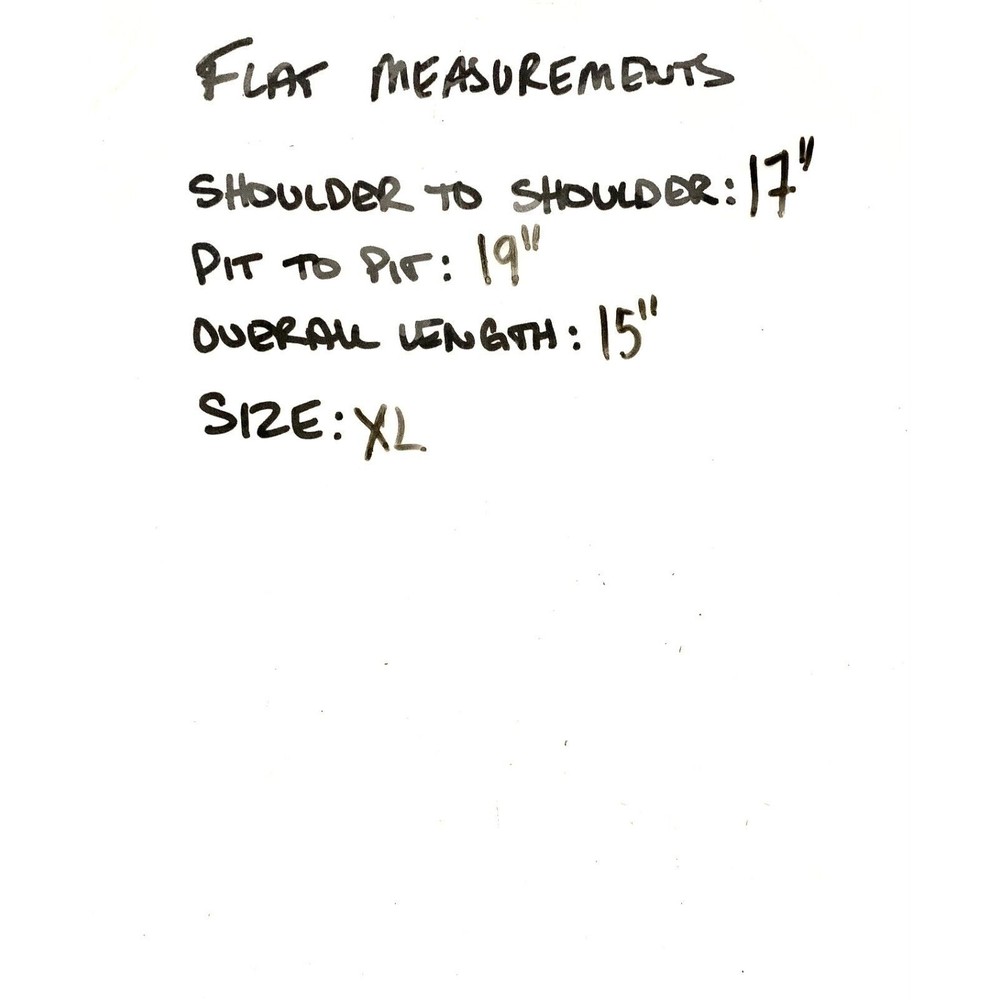 FLAT MEASUREMENTS
SHOULDER TO SHOULDER: 17"
PIT TO PIT: 19"
OVERALL LENGTH: 15"
SIZE: XL